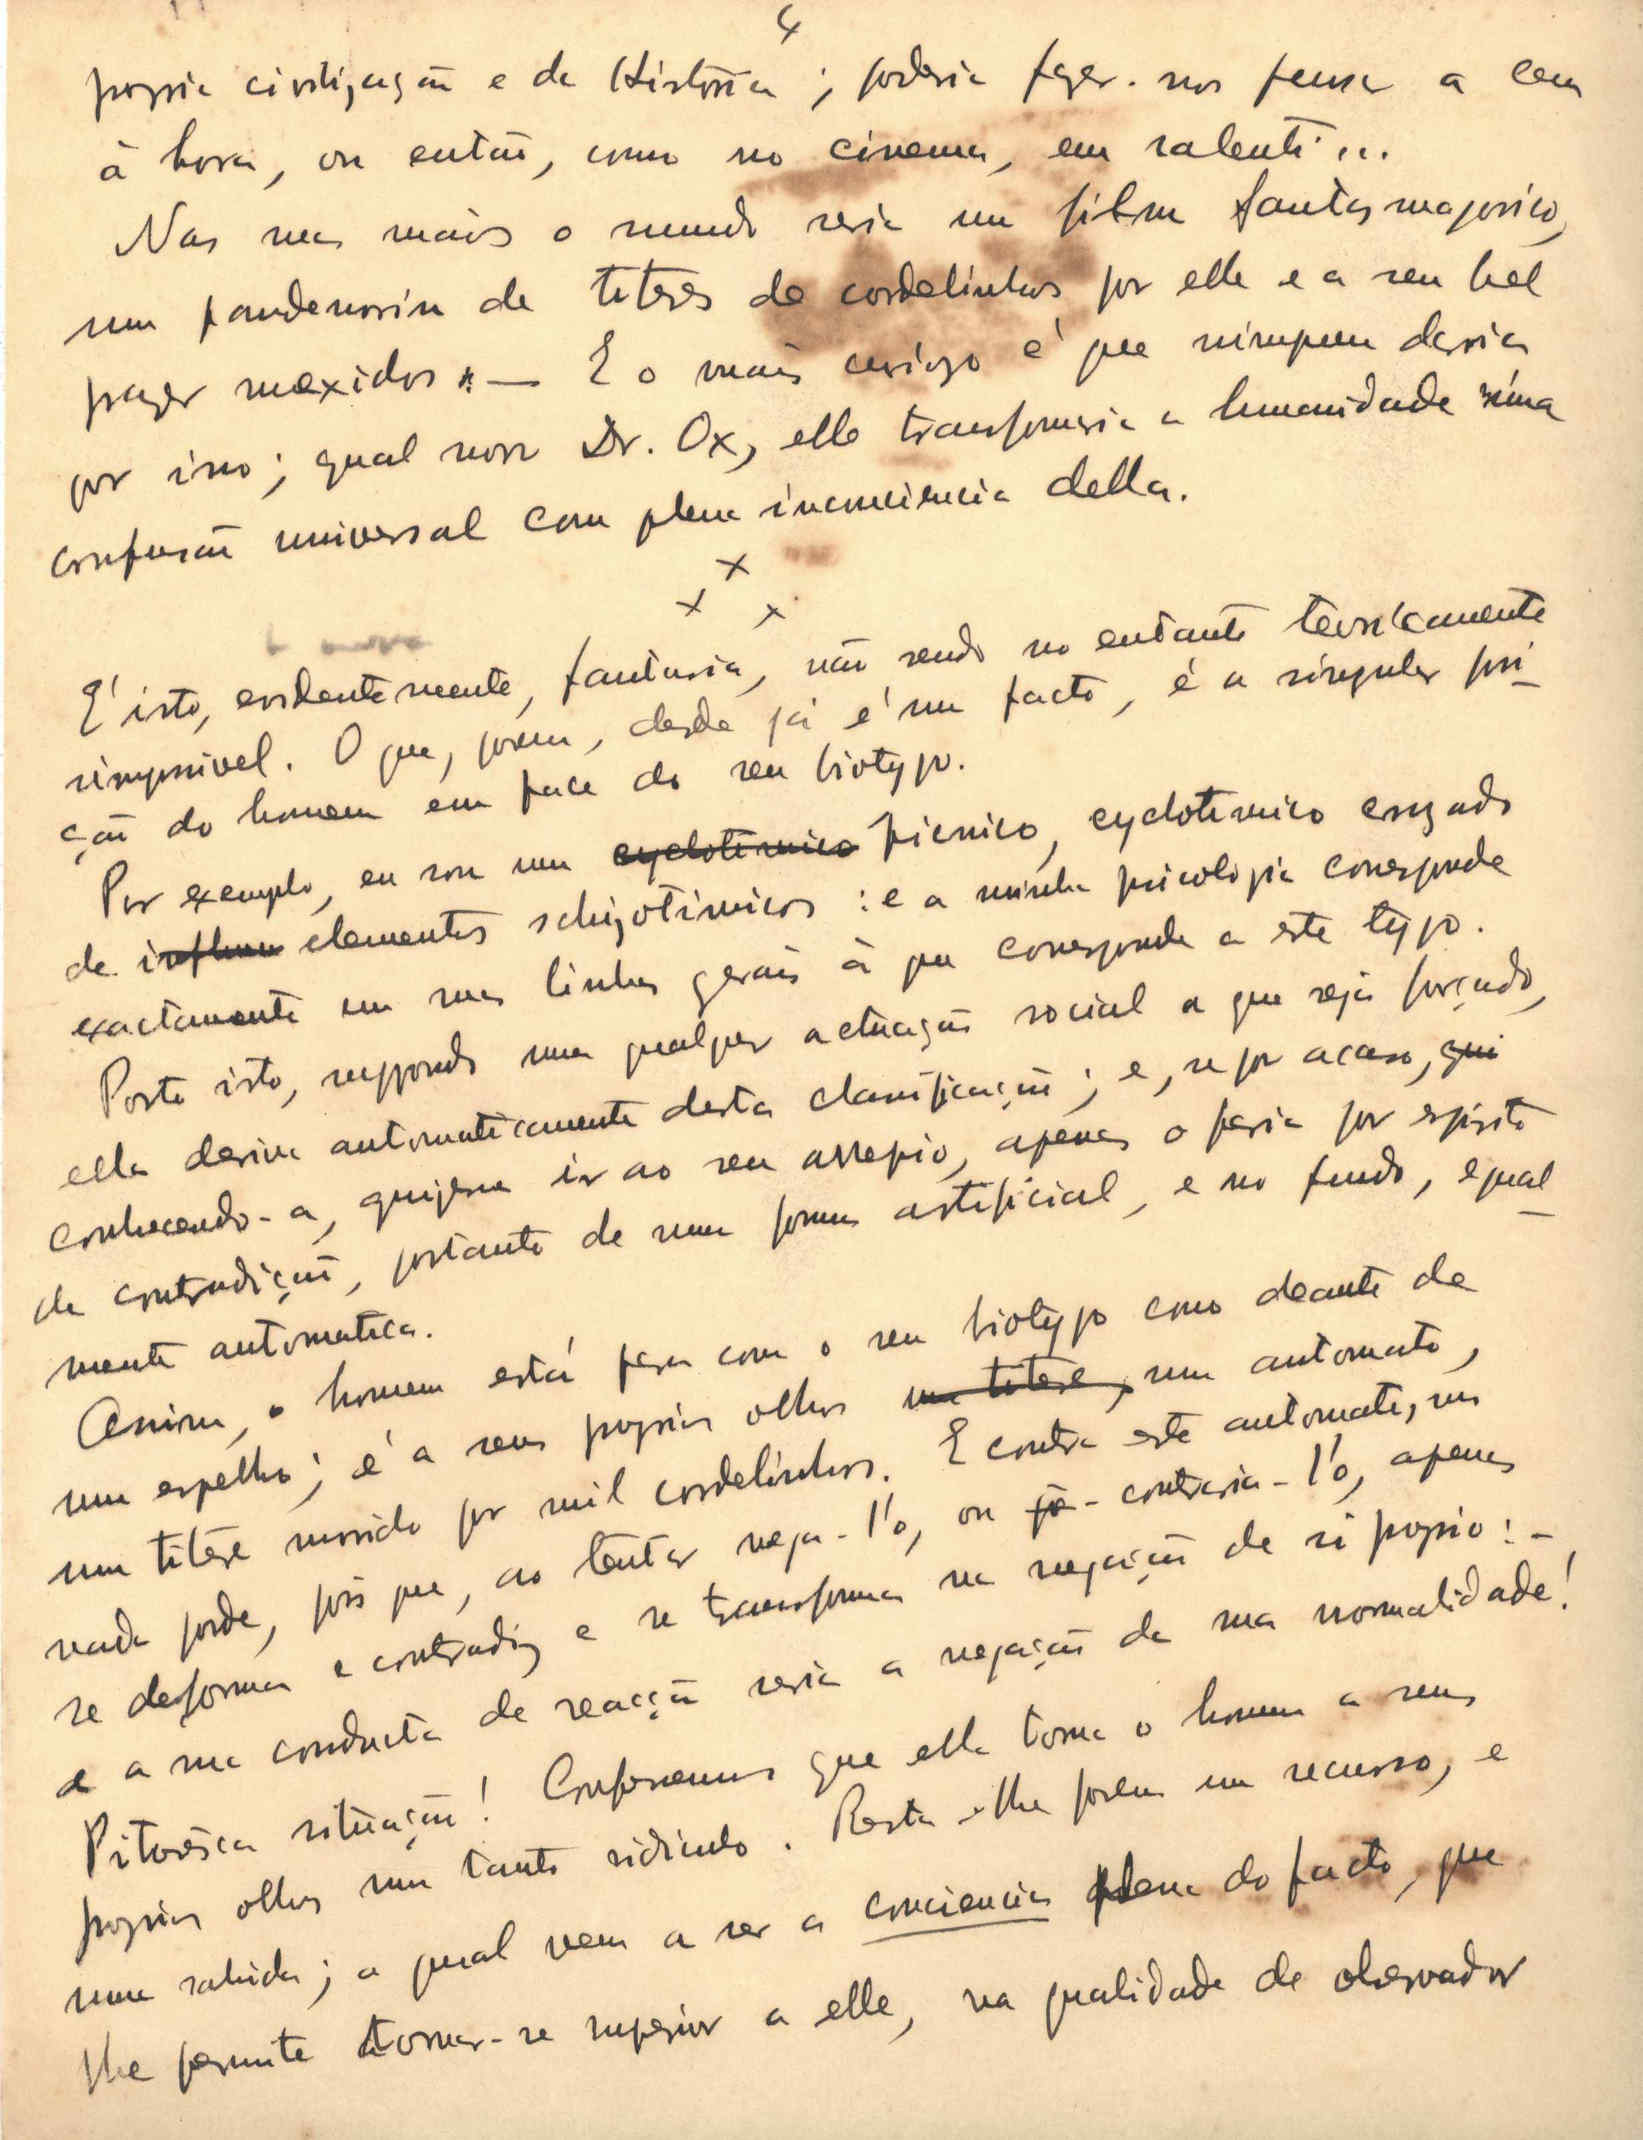 4
propria civilização e da História; poderia fazer-nos pensar a cem
à hora, ou então, como no cinema, em ralenti...
Nas suas mãos o mundo seria um film fantasmagorico,
um pandemonin de titeres de cordelinhos por elle e a seu bel
prazer mexidos. — E o mais curiozo é que ninguem daria
por isso; qual novo Dr. Ox, elle transformaria a humanidade numa
confusão universal com plena inconciencia della.
x x x
É isto, evidentemente, fantasia, não sendo no entanto teoricamente
impossivel. O que, porem, desde já é um facto, é a singular posi-
ção do homem em face do seu biotypo.
Por exemplo, eu sou um cyclotimico picnico, cyclotimico cruzado
de influen elementos schizotimicos: e a minha psicologia corresponde
exactamente em suas linhas gerais à que corresponde a este typo.
Posto isto, supponds uma qualquer actuação social a que seja forçado,
ella deriva automaticamente desta classificação; e, se por acaso, qui
conhecendo-a, quizesse ir ao seu arrepio, apenas o faria por espirito
de contradição, portanto de uma forma artificial, e no fundo, egual-
mente automatica.
Assim, o homem está para com o seu biotypo como deante de
um espelho; é a seus proprios olhos um titere, um automato,
um titere movido por mil cordelinhos. E contra este automato,
nada pode, pois que, ao tentar nega-l'o, ou contraria-l'o, apenas
se deforma e contradiz e se transforma na negação de si proprio: -
e a sua conducta de reacção seria a negação da sua normalidade!
Pitoresca situação! Confessemos que ella torna o homem a seus
proprios olhos um tanto ridiculo. Resta-lhe porem um recurso, e
uma sahida; a qual vem a ser a conciencia plena do facto, que
lhe permite tornar-se superior a elle, na qualidade de observador